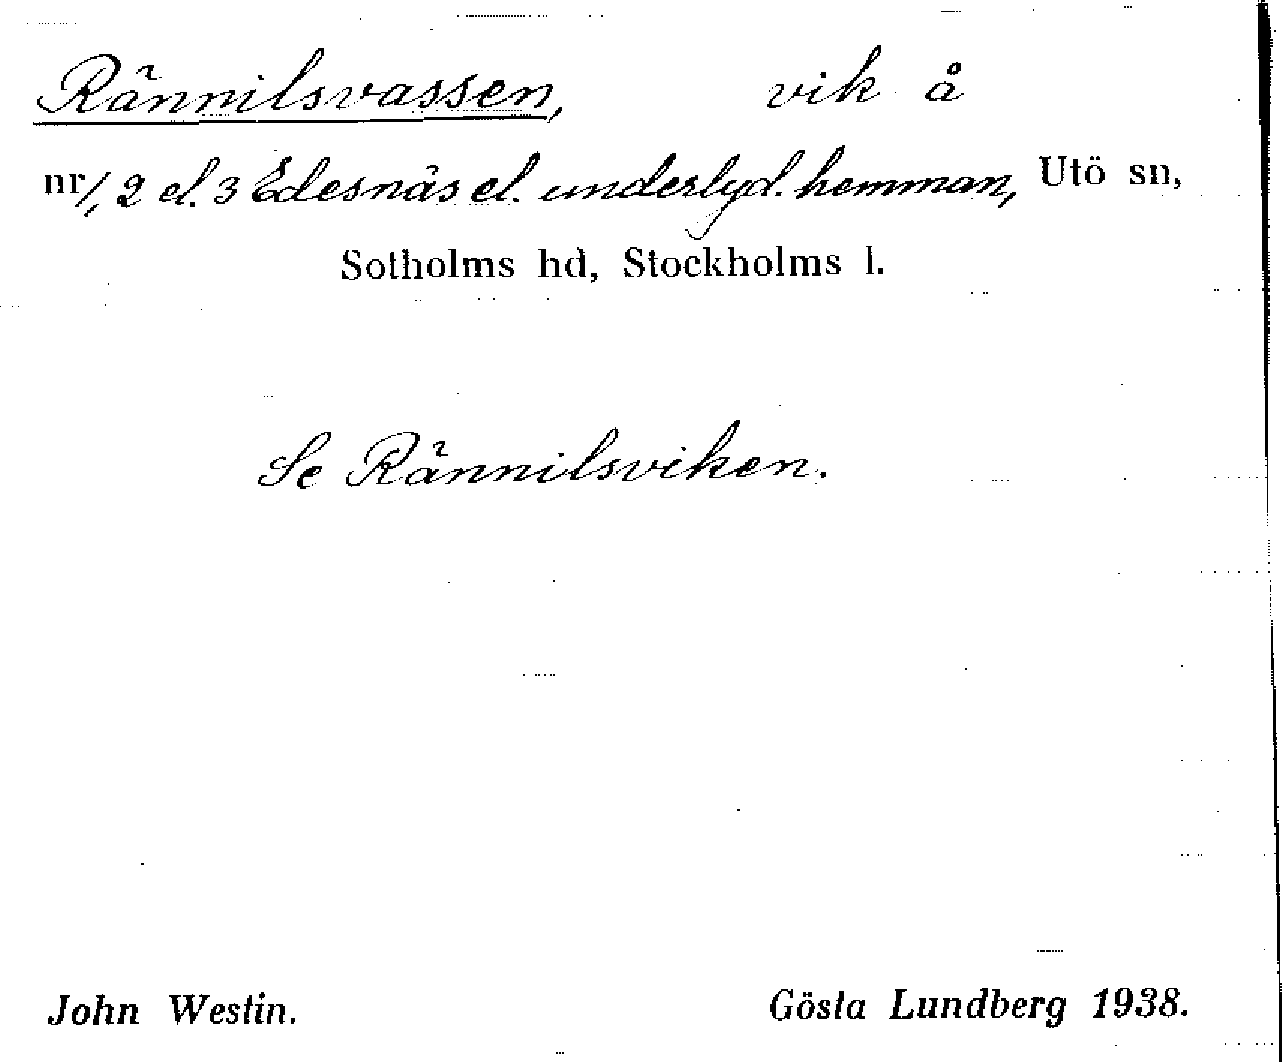 Rännilsvassen, vik å
nr 1, 2 el. 3 Edesnäs el. underlyd. hemman, Utö sn,
Sotholms hd, Stockholms l.
Se Rännilsviken.
John Westin. Gösta Lundberg 1938.